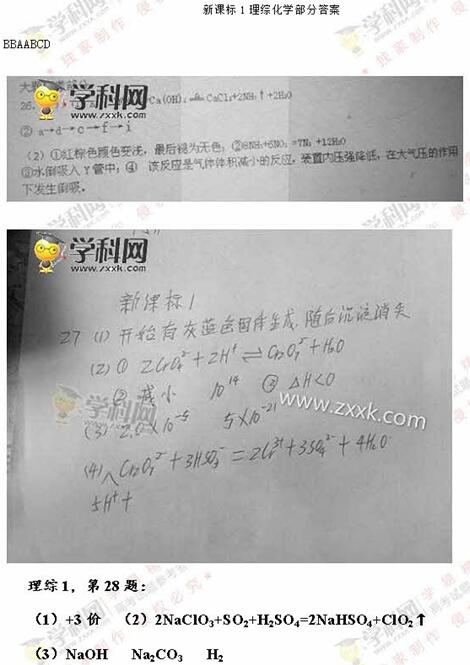 新课标1理综化学部分答案
BBAABCD
学科网
www.zxxk.com
26.
Ca(OH)₂ CaCl₂+2NH₃↑+2H₂O
② a→d→c→f→i
(2) ①红棕色颜色变浅，最后褪为无色；②8NH₃+6NO₂=7N₂+12H₂O
③水倒吸入Y管中；④ 该反应是气体体积减小的反应，装置内压强降低，在大气压的作用
下发生倒吸。
学科网
www.zxxk.com
新课标1
27 (1) 开始有灰蓝色固体生成，随后沉淀消失
(2) ① 2CrO₄²⁻+2H⁺⇌Cr₂O₇²⁻+H₂O
② 减小 10¹⁴ ③ ΔH<0
(3) 2.0×10⁻⁵ 5×10⁻²¹
www.zxxk.com
(4) Cr₂O₇²⁻+3HSO₃⁻=2Cr³⁺+3SO₄²⁻+4H₂O
5H⁺+
理综1，第28题：
（1）+3价 （2）2NaClO₃+SO₂+H₂SO₄=2NaHSO₄+ClO₂↑
（3）NaOH Na₂CO₃ H₂